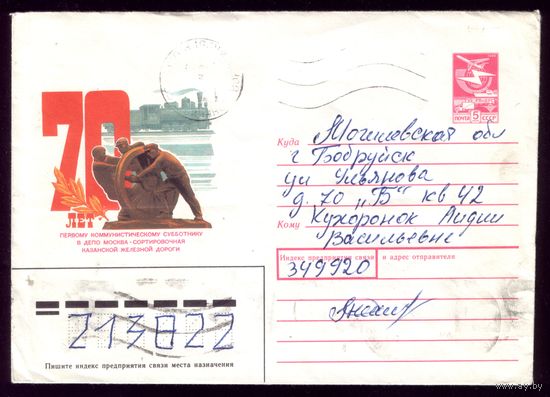 70
ЛЕТ
ПЕРВОМУ КОММУНИСТИЧЕСКОМУ СУББОТНИКУ
В ДЕПО МОСКВА-СОРТИРОВОЧНАЯ
КАЗАНСКОЙ ЖЕЛЕЗНОЙ ДОРОГИ
ПОЧТА 5 СССР
Куда Могилевская обл
г Бобруйск
ул Ульянова
д. 70 "Б" кв 42
Кому Кухоронок Лидии
Васильевне
Индекс предприятия связи и адрес отправителя
349920
213822
Пишите индекс предприятия связи места назначения
www.ay.by